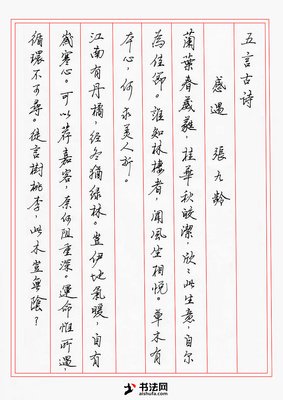 五言古诗
感遇 張九齡
蘭葉春葳蕤，桂華秋皎潔，欣々此生意，自尔
為佳節。誰知林棲者，聞風坐相悅。草木有
本心，何求美人折。
江南有丹橘，經冬猶綠林。豈伊地氣暖，自有
歲寒心。可以荐嘉客，奈何阻重深。運命惟所遇，
循環不可尋。徒言樹桃李，此木豈無陰？
书法网
aishufa.com